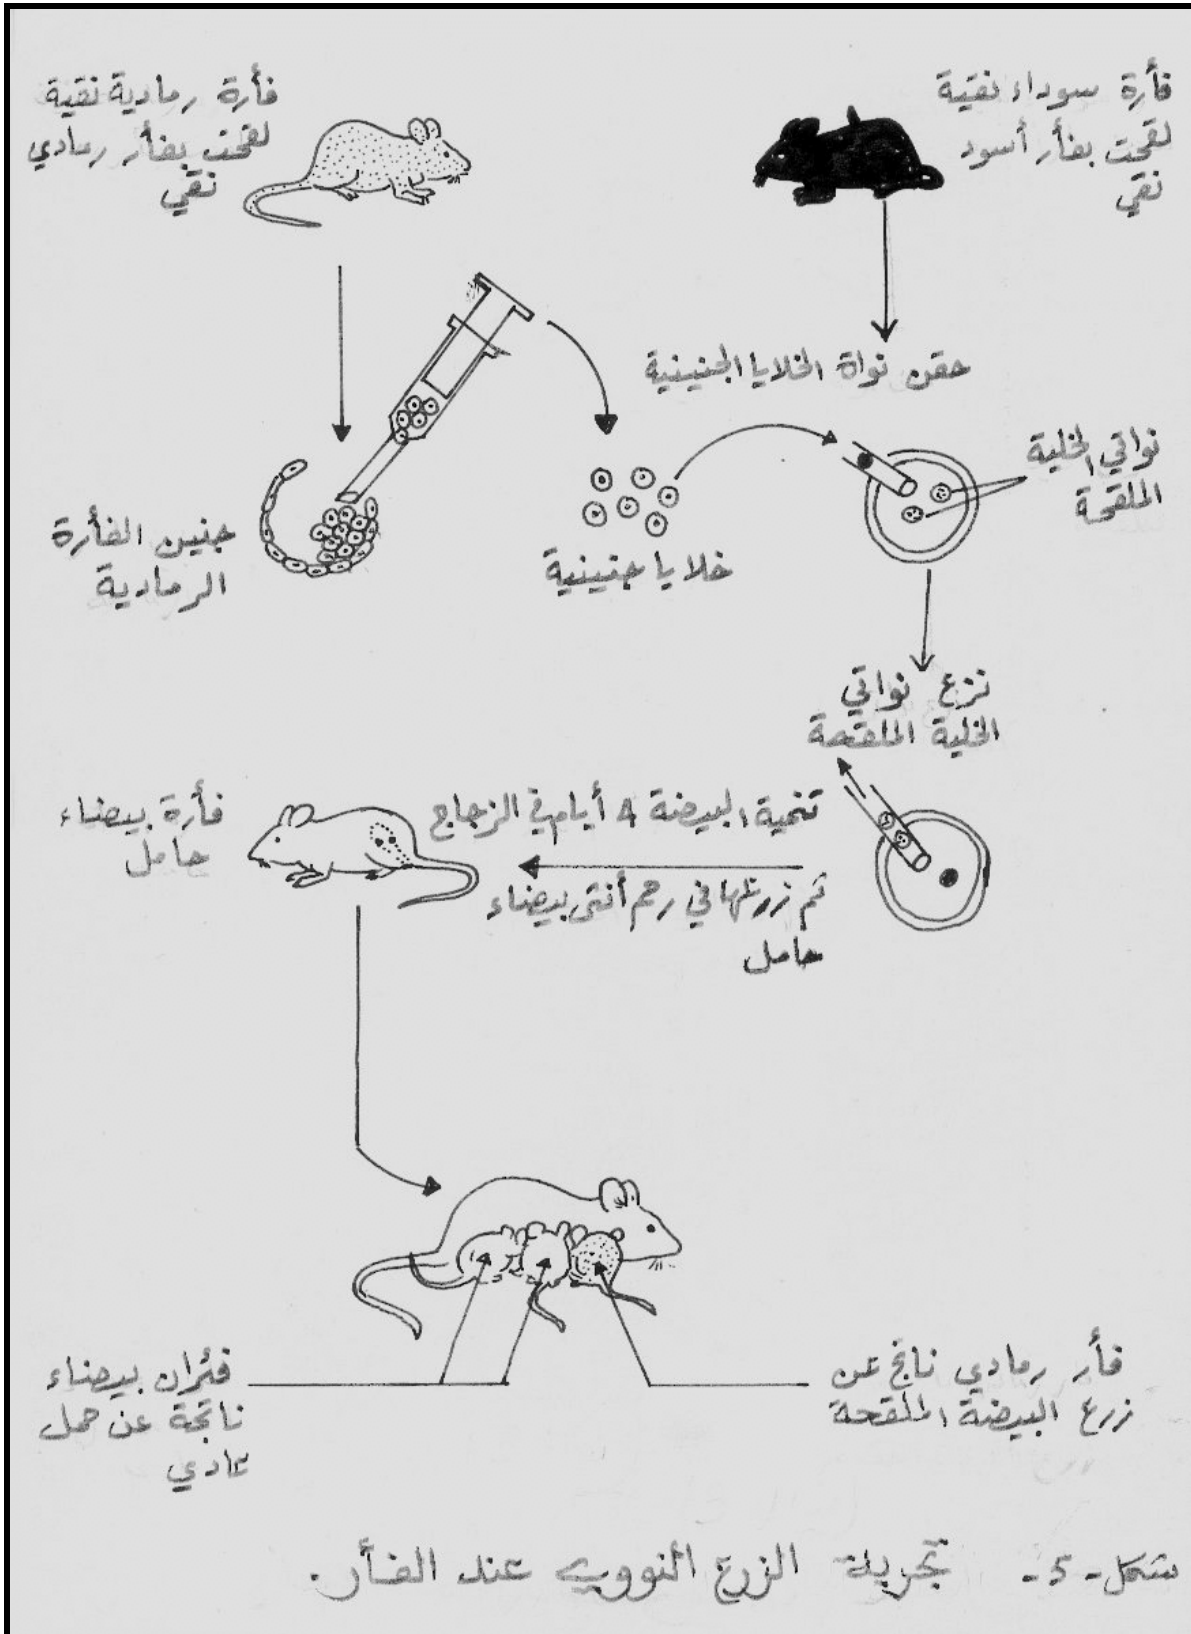 فأرة سوداء نقية
لقحت بفأر أسود
نقي
فأرة رمادية نقية
لقحت بفأر رمادي
نقي
حقن نواة الخلايا الجنينية
نواتي الخلية
الملقحة
جنين الفأرة
الرمادية
خلايا جنينية
نزع نواتي
الخلية الملقحة
تنمية البيضة 4 أيام في الزجاج
ثم زرعها في رحم أنثى بيضاء
حامل
فأرة بيضاء
حامل
فأر رمادي ناتج عن
زرع البيضة الملقحة
فئران بيضاء
ناتجة عن حمل
عادي
شكل - 5 - تجربة الزرع النووي عند الفأر.